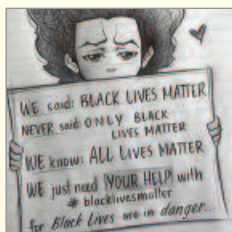 WE said: BLACK LIVES MATTER
NEVER said ONLY BLACK
LIVES MATTER
WE know: ALL LIVES MATTER
WE just need YOUR HELP with
# blacklivesmatter
for Black Lives are in danger..